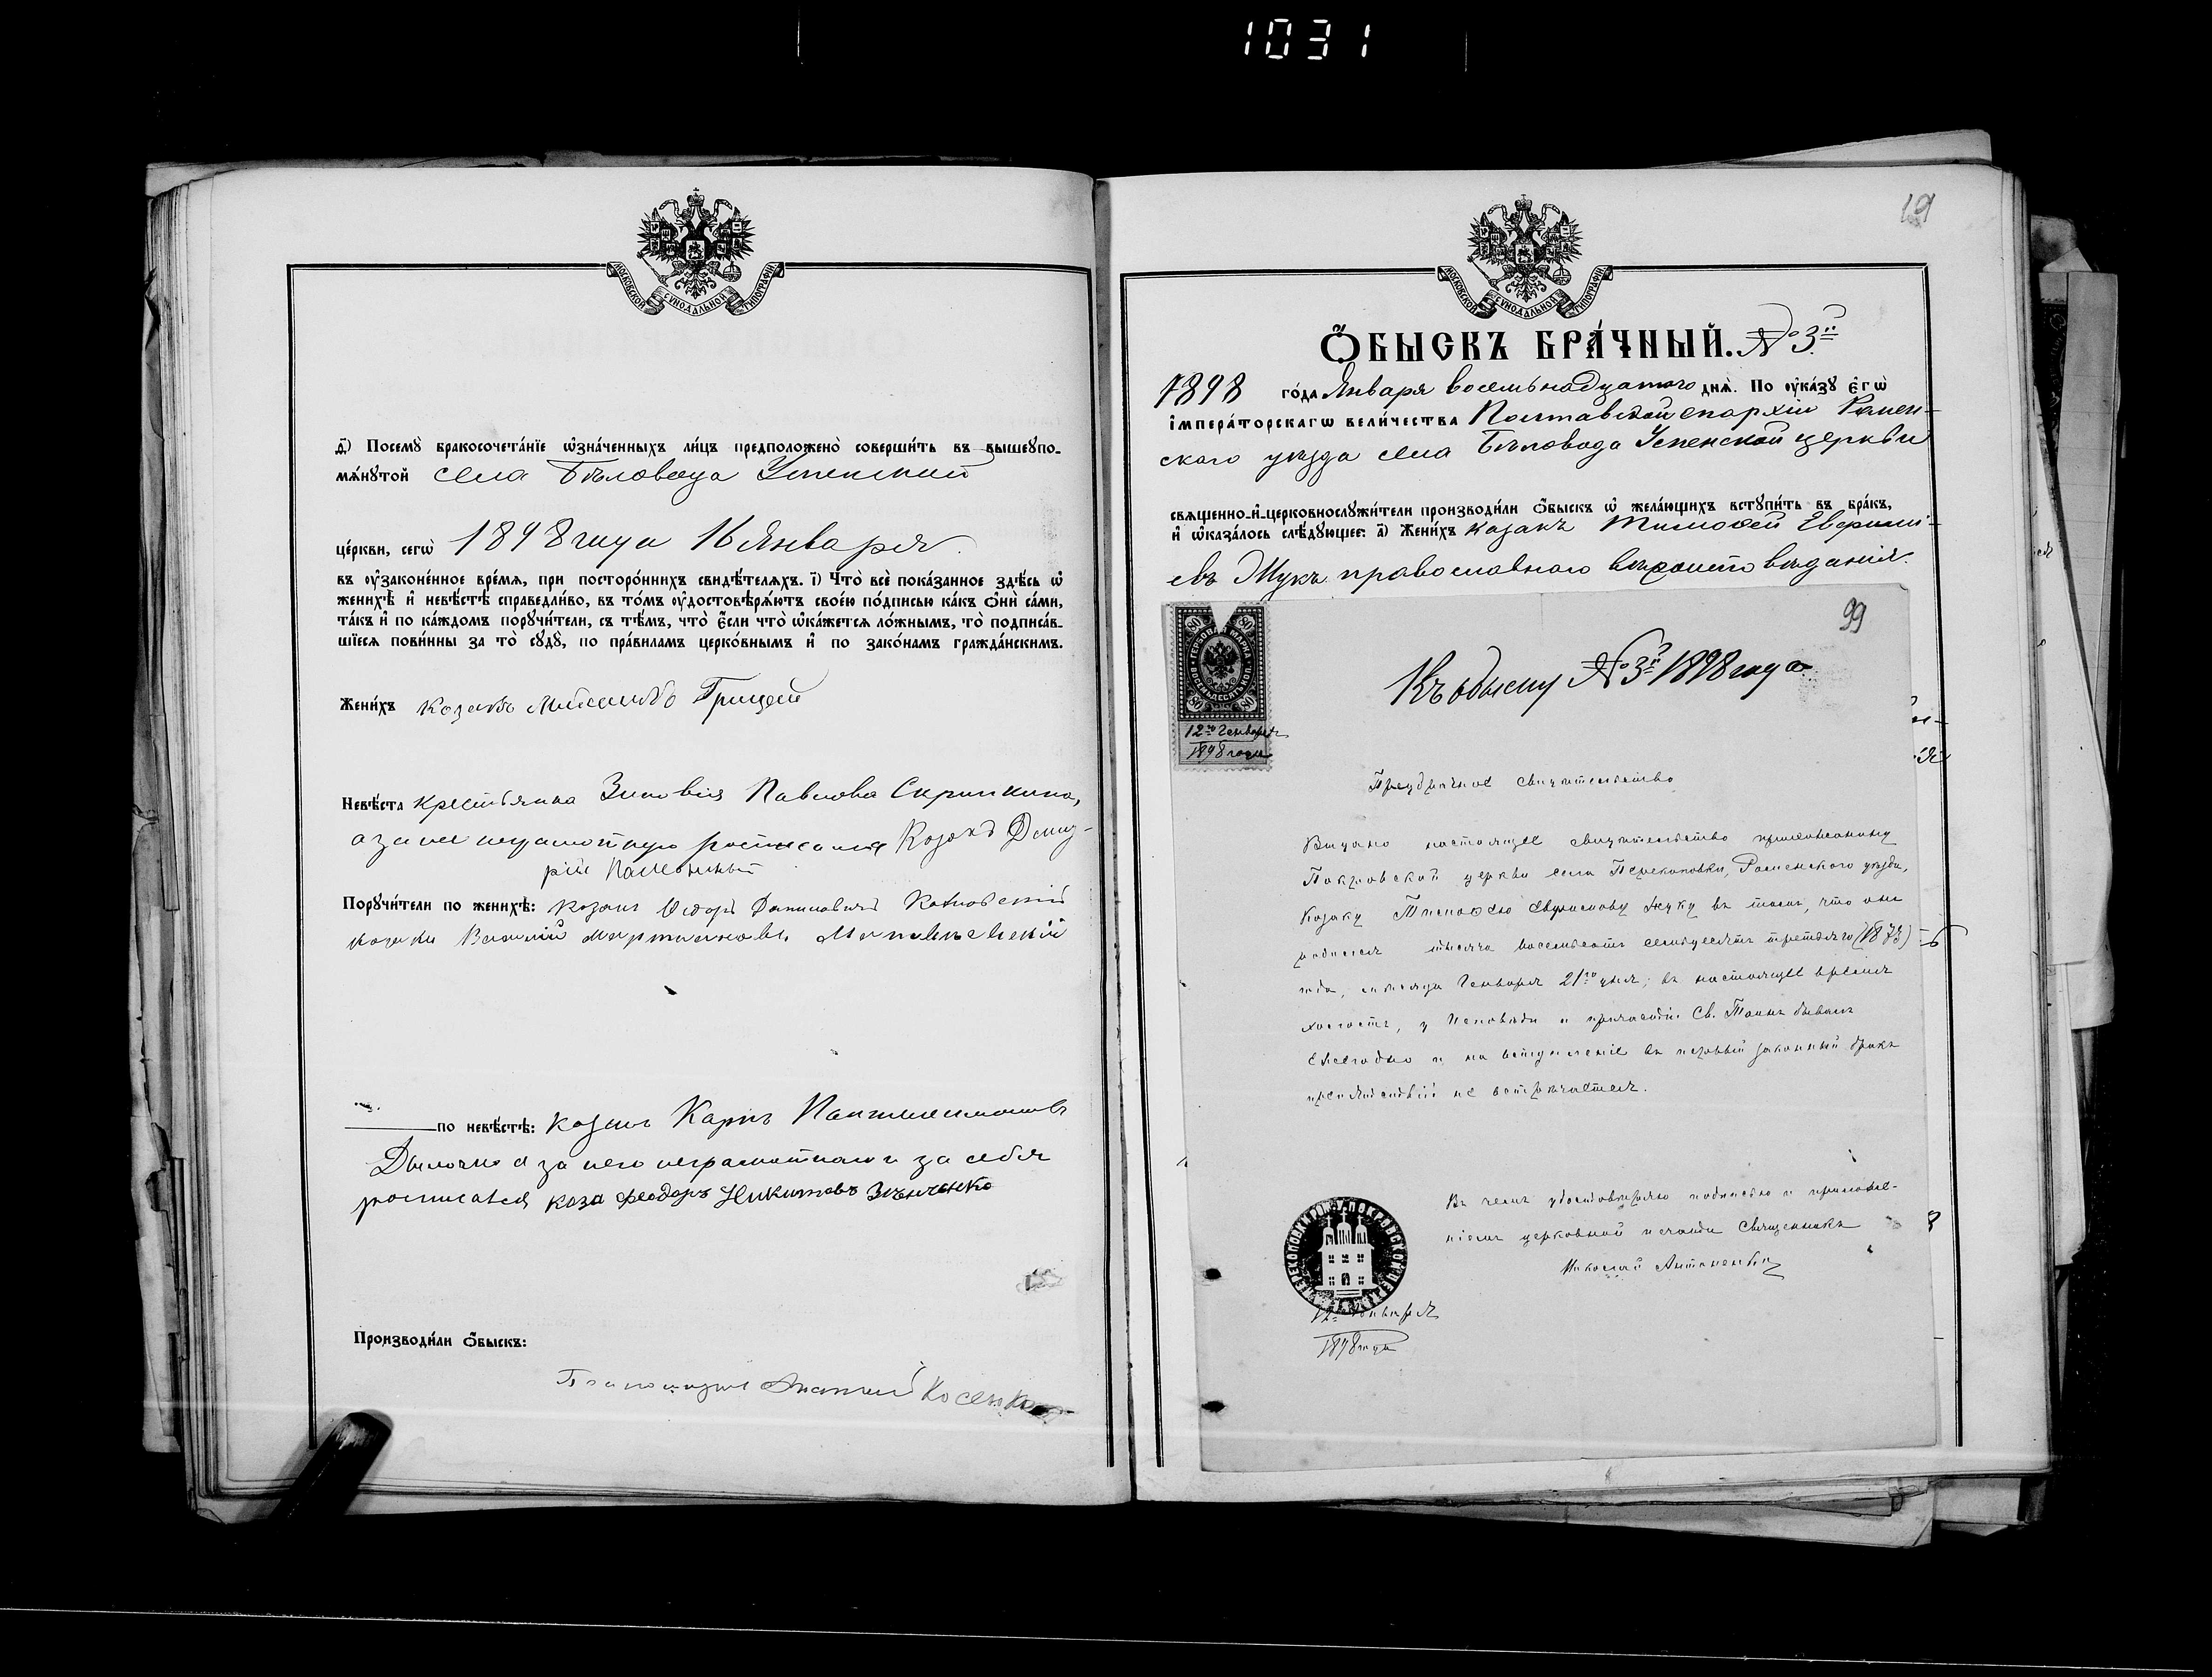 1031
МОСКОВСКОЙ СѴНОДАЛЬНОЙ ТИПОГРАФІИ
д҃і) Посемꙋ̀ бракосочета́нїе ѡ҆зна́ченныхъ ли́цъ предположено̀ соверши́ть въ вышеꙋпо-
мѧ́нꙋтой села Бѣловода Успенской
це́ркви, сегѡ̀ 1898 года 16 Января
въ ᲂу҆законе́нное вре́мѧ, при посторо́ннихъ свидѣ́телѧхъ. і҃) Что̀ всѐ пока́занное здѣ́сь ѡ҆
женихѣ̀ и҆ невѣ́стѣ справедли́во, въ то́мъ ᲂу҆достовѣрѧ́ютъ свое́ю по́дписью ка́къ ѻ҆нѝ са́ми,
та́къ и҆ по ка́ждомъ порꙋчи́тели, съ тѣ́мъ, что̀ є҆́сли что̀ ѡ҆ка́жетсѧ ло́жнымъ, то̀ подписа́в-
шїесѧ пови́нны за то̀ сꙋдꙋ̀, по пра́виламъ церко́внымъ и҆ по зако́намъ гражда́нскимъ.
Жени́хъ Козакъ Грицай
Невѣ́ста крестьянка Зиновія Павлова Скрипкина,
а за нее неграмотную росписался Козакъ Дмит-
рій
Порꙋчи́тели по женихѣ̀: козакъ Ѳедоръ
козакъ Василій Мартиновъ
по невѣ́стѣ: козакъ Карпъ Пантелеимоновъ
а за него неграмотнаго и за себя
росписался коза Феодоръ Никитовъ Зѣнченко
Производи́ли ѻ҆́быскъ:
Косенко
19
МОСКОВСКОЙ СѴНОДАЛЬНОЙ ТИПОГРАФІИ
Ѻ҆́БЫСКЪ БРА́ЧНЫЙ. № 3й
1898 го́да Января восемьнадцатого днѧ̀. По ᲂу҆ка́зꙋ є҆гѡ̀
і҆мпера́торскагѡ вели́чества Полтавской епархіи Ромен-
ского уѣзда села Бѣловода Успенской церкви
свѧщенно-и҆-церковнослꙋжи́тели производи́ли ѻ҆́быскъ ѡ҆ жела́ющихъ вступи́ть въ бра́къ,
и҆ ѡ҆каза́лось слѣ́дꙋющее: а҃) Жени́хъ козакъ Тимоѳей Евфимі-
евъ Жукъ православного вѣроисповѣданія.
99
ГЕРБОВАЯ МАРКА ВОСЕМЬДЕСЯТЪ КОП.
80 80 80 80
12го Генваря
1898 года
Къ обыску № 3й 1898 года
Предбрачное свидѣтельство
Выдано настоящее свидѣтельство прихожанину
Покровской церкви села Перекоповки, Роменского уѣзда,
Козаку Тимоѳею Евфимову Жуку въ томъ, что онъ
родился тысяча восемьсотъ семьдесятъ третьяго (1873)
года, мѣсяца Генваря 21го дня; въ настоящее время
холостъ, у Исповѣди и причастія Св. Таинъ бывалъ
ежегодно и на вступленіе въ первый законный бракъ
препятствій не встрѣчается.
Въ чемъ удостовѣряю подписью и приложе-
ніемъ церковной печати Священникъ
Николай Антоненко
12го Генваря
1898 года